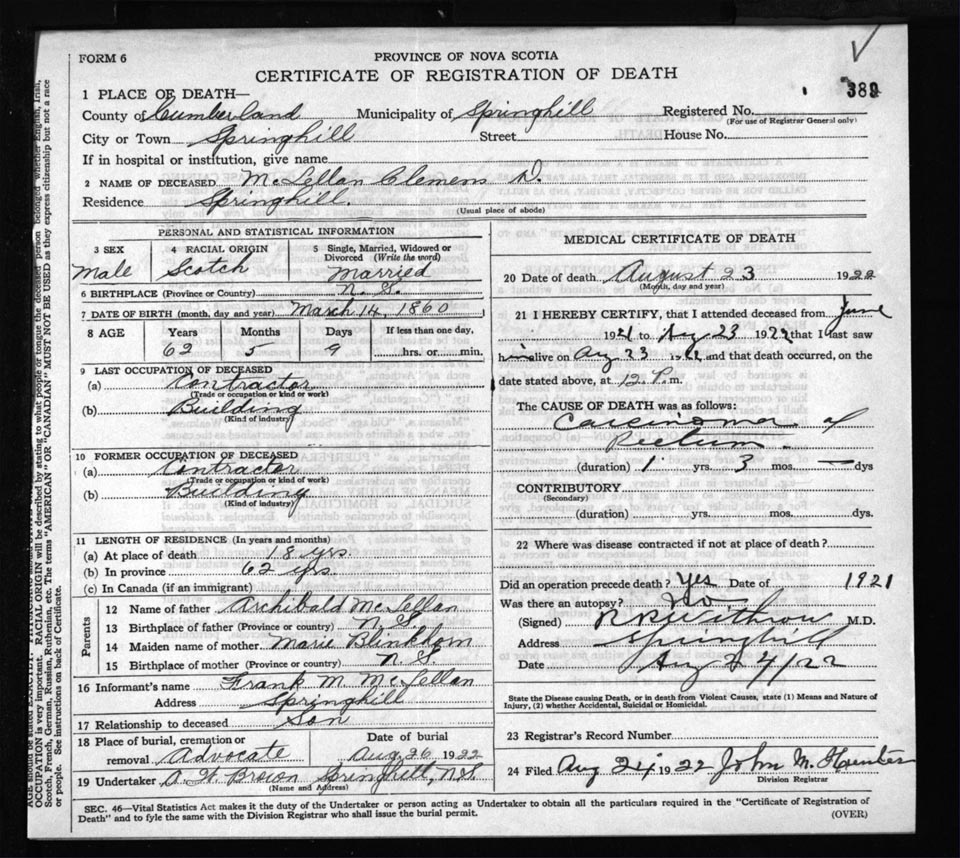 FORM 6
PROVINCE OF NOVA SCOTIA
CERTIFICATE OF REGISTRATION OF DEATH
389
1 PLACE OF DEATH—
County of Cumberland Municipality of Springhill Registered No.
(For use of Registrar General only)
City or Town Springhill Street House No.
If in hospital or institution, give name
2 NAME OF DECEASED McLellan Clemens D.
Residence Springhill.
(Usual place of abode)
PERSONAL AND STATISTICAL INFORMATION
3 SEX Male
4 RACIAL ORIGIN Scotch
5 Single, Married, Widowed or Divorced (Write the word) Married
6 BIRTHPLACE (Province or Country) N. S.
7 DATE OF BIRTH (month, day and year) March 14, 1860
8 AGE Years Months Days If less than one day,
62 5 9 hrs. or min.
9 LAST OCCUPATION OF DECEASED
(a) Contractor
(Trade or occupation or kind or work)
(b) Building
(Kind of industry)
10 FORMER OCCUPATION OF DECEASED
(a) Contractor
(Trade or occupation or kind of work)
(b) Building
(Kind of industry)
11 LENGTH OF RESIDENCE (In years and months)
(a) At place of death 18 yrs.
(b) In province 62 yrs.
(c) In Canada (if an immigrant)
Parents
12 Name of father Archibald McLellan
13 Birthplace of father (Province or country) N. S.
14 Maiden name of mother Marie Blinkhorn
15 Birthplace of mother (Province or country) N S.
16 Informant's name Frank M. McLellan
Address Springhill
17 Relationship to deceased Son
18 Place of burial, cremation or removal Advocate
Date of burial Aug 26 1922
19 Undertaker A. W. Brown Springhill, N.S.
(Name and Address)
MEDICAL CERTIFICATE OF DEATH
20 Date of death August 23 1922
(Month, day and year)
21 I HEREBY CERTIFY, that I attended deceased from June
1921 to Aug 23 1922 that I last saw
him alive on Aug 23 1922 and that death occurred, on the
date stated above, at 12. P. m.
The CAUSE OF DEATH was as follows:
Carcinoma of
Rectum.
(duration) 1 yrs. 3 mos. — dys
CONTRIBUTORY
(Secondary)
(duration) yrs. mos. dys.
22 Where was disease contracted if not at place of death?
Did an operation precede death? Yes Date of 1921
Was there an autopsy? No
(Signed) Withrow M.D.
Address Springhill
Date Aug 24/22
State the Disease causing Death, or in death from Violent Causes, state (1) Means and Nature of
Injury, (2) whether Accidental, Suicidal or Homicidal.
23 Registrar's Record Number
24 Filed Aug 24 1922 John M. Hunter
Division Registrar
SEC. 46—Vital Statistics Act makes it the duty of the Undertaker or person acting as Undertaker to obtain all the particulars required in the "Certificate of Registration of
Death" and to fyle the same with the Division Registrar who shall issue the burial permit.
(OVER)
OCCUPATION is very important. RACIAL ORIGIN will be described by stating to what people or tongue the deceased person belonged whether English, Irish,
Scotch, French, German, Russian, Ruthenian, etc. The terms "AMERICAN" OR "CANADIAN" MUST NOT BE USED as they express citizenship but not a race
or people. See instructions on back of Certificate.